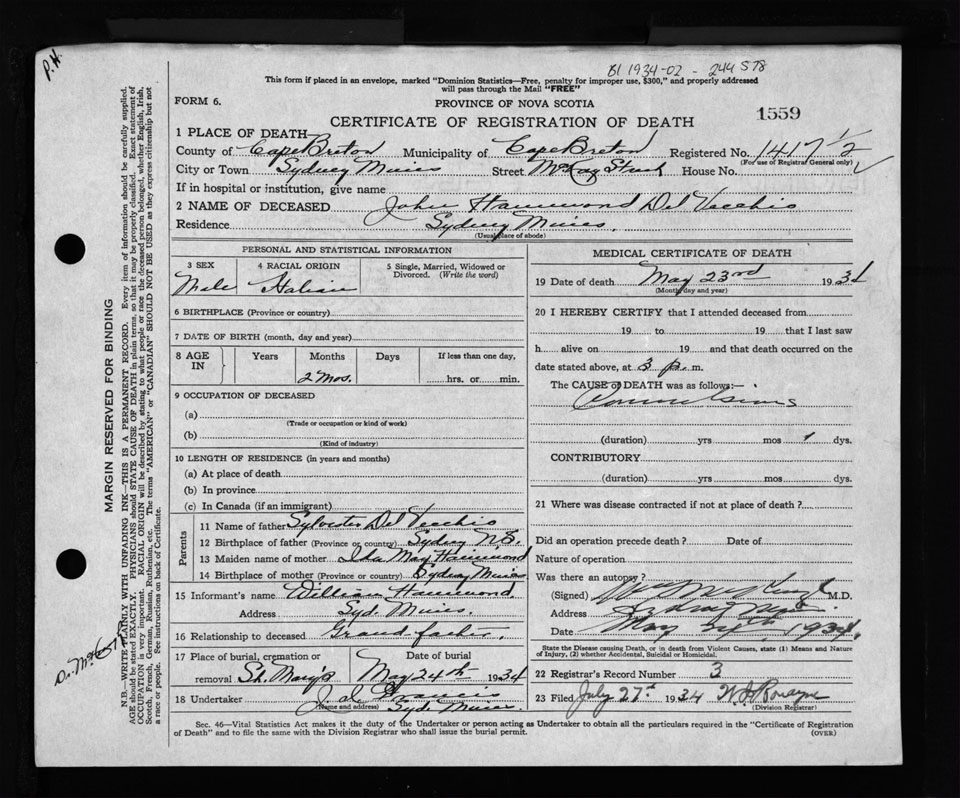 P.H.
B1 1934-02 - 244578
This form if placed in an envelope, marked "Dominion Statistics—Free, penalty for improper use, $300," and properly addressed
will pass through the Mail "FREE"
FORM 6.
PROVINCE OF NOVA SCOTIA
1559
CERTIFICATE OF REGISTRATION OF DEATH
1 PLACE OF DEATH
County of Cape Breton Municipality of Cape Breton Registered No. 1417 1/2
(For use of Registrar General only)
City or Town Sydney Mines Street McKay Street House No.
If in hospital or institution, give name
2 NAME OF DECEASED John Hammond Del Vecchio
Residence Sydney Mines.
(Usual place of abode)
PERSONAL AND STATISTICAL INFORMATION
3 SEX 4 RACIAL ORIGIN 5 Single, Married, Widowed or
Divorced. (Write the word)
Male Italian
6 BIRTHPLACE (Province or country)
7 DATE OF BIRTH (month, day and year)
8 AGE IN Years Months Days If less than one day,
2 mos. hrs. or min.
9 OCCUPATION OF DECEASED
(a)
(Trade or occupation or kind of work)
(b)
(Kind of industry)
10 LENGTH OF RESIDENCE (in years and months)
(a) At place of death
(b) In province
(c) In Canada (if an immigrant)
Parents
11 Name of father Sylvester Del Vecchio
12 Birthplace of father (Province or country) Sydney N.S.
13 Maiden name of mother Ida May Hammond
14 Birthplace of mother (Province or country) Sydney Mines
15 Informant's name William Hammond
Address Syd. Mines.
16 Relationship to deceased Grand father.
17 Place of burial, cremation or Date of burial
removal St. Mary's May 24th 1934
18 Undertaker J. A. Francis
(Name and address) Syd. Mines.
MEDICAL CERTIFICATE OF DEATH
19 Date of death May 23rd 1934
(Month, day and year)
20 I HEREBY CERTIFY that I attended deceased from
19 to 19 that I last saw
h alive on 19 and that death occurred on the
date stated above, at 3 p. m.
The CAUSE of DEATH was as follows:—
Convulsions
(duration) yrs mos 1 dys.
CONTRIBUTORY
(duration) yrs mos dys.
21 Where was disease contracted if not at place of death?
Did an operation precede death? Date of
Nature of operation
Was there an autopsy?
(Signed) M.D.
Address Sydney Mines
Date May 24th 1934.
State the Disease causing Death, or in death from Violent Causes, state (1) Means and Nature
of Injury, (2) whether Accidental, Suicidal or Homicidal.
22 Registrar's Record Number 3
23 Filed July 27th 1934
(Division Registrar)
Sec. 46—Vital Statistics Act makes it the duty of the Undertaker or person acting as Undertaker to obtain all the particulars required in the "Certificate of Registration
of Death" and to file the same with the Division Registrar who shall issue the burial permit. (OVER)
MARGIN RESERVED FOR BINDING
N.B.—WRITE PLAINLY WITH UNFADING INK—THIS IS A PERMANENT RECORD. Every item of information should be carefully supplied.
AGE should be stated EXACTLY. PHYSICIANS should STATE CAUSE OF DEATH in plain terms, so that it may be properly classified. Exact statement of
OCCUPATION is very important. RACIAL ORIGIN will be described by stating to what people or race the deceased person belonged, whether English, Irish,
Scotch, French, German, Russian, Ruthenian, etc. The terms "AMERICAN" or "CANADIAN" SHOULD NOT BE USED as they express citizenship but not
a race or people. See instructions on back of Certificate.